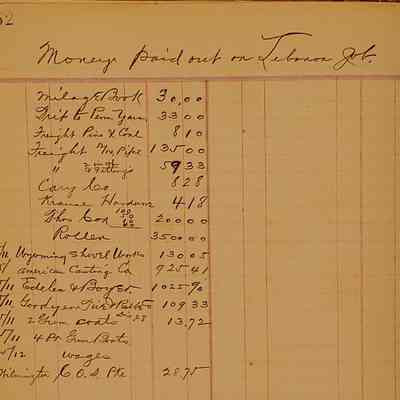 52
Moneys paid out on Lebanon Job.
Milag Book 30.00
Trip to Penn Yan 33 00
Freight Pins & Coal 8 10
Freight Pipe 135 00
" Fittings 59 33
Cary Co 8 28
Krause Hardware 4 18
Thos Cox 200 00
Roller 350 00
/11 Wyoming Shovel Works 130 05
/11 American Casting Co 925 41
/11 & Boyer 1025 70
/11 Goodyear Tire & Rub Co 109 33
5/11 2 Gum Coats 13.72
5/11 4 Pr Gum Boots
5/12 wages
Wilmington C.O.D. Pkg 28.75